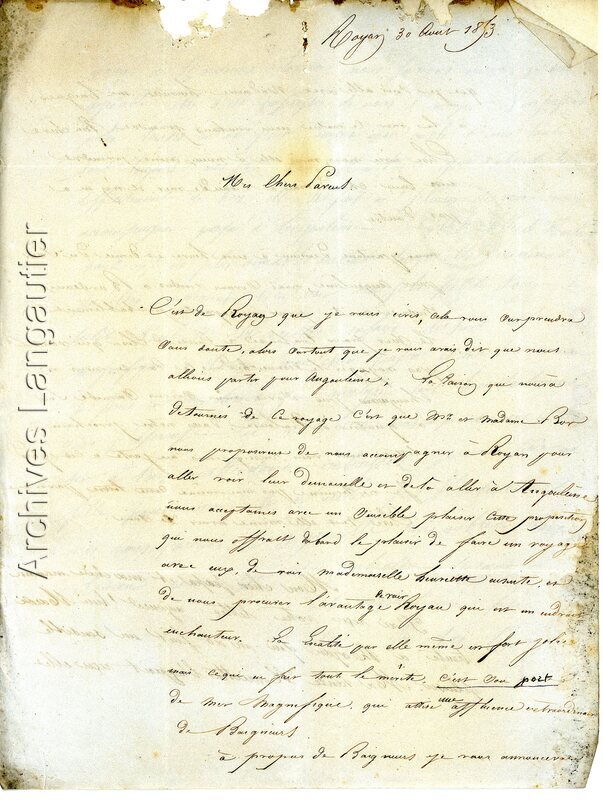 Royan 30 Aout 1853
Mes Chers Parents
C'est de Royan que je vous écris, cela vous surprendra
sans doute, alors surtout que je vous avais dit que nous
allions partir pour Angoulême. La raison que nous a
detournés de ce voyage c'est que Mr et Madame Bor
nous proposèrent de nous accompagner à Royan pour
aller voir leur demoiselle et de là aller à Angoulême
nous acceptames avec un sensible plaisir cette proposition
qui nous offrait dabord le plaisir de faire un voyage
avec eux, de voir mademoiselle henriette ensuite, et
de nous procurer l'avantage de voir Royan qui est un endroit
enchanteur. La localité par elle même est fort jolie
mais ce qui en fait tout le mérite, c'est son port
de mer Magnifique qui attire une affluence extraordinaire
de Baigneurs
à propos de Baigneurs je vous annoncerai
Archives Langautier